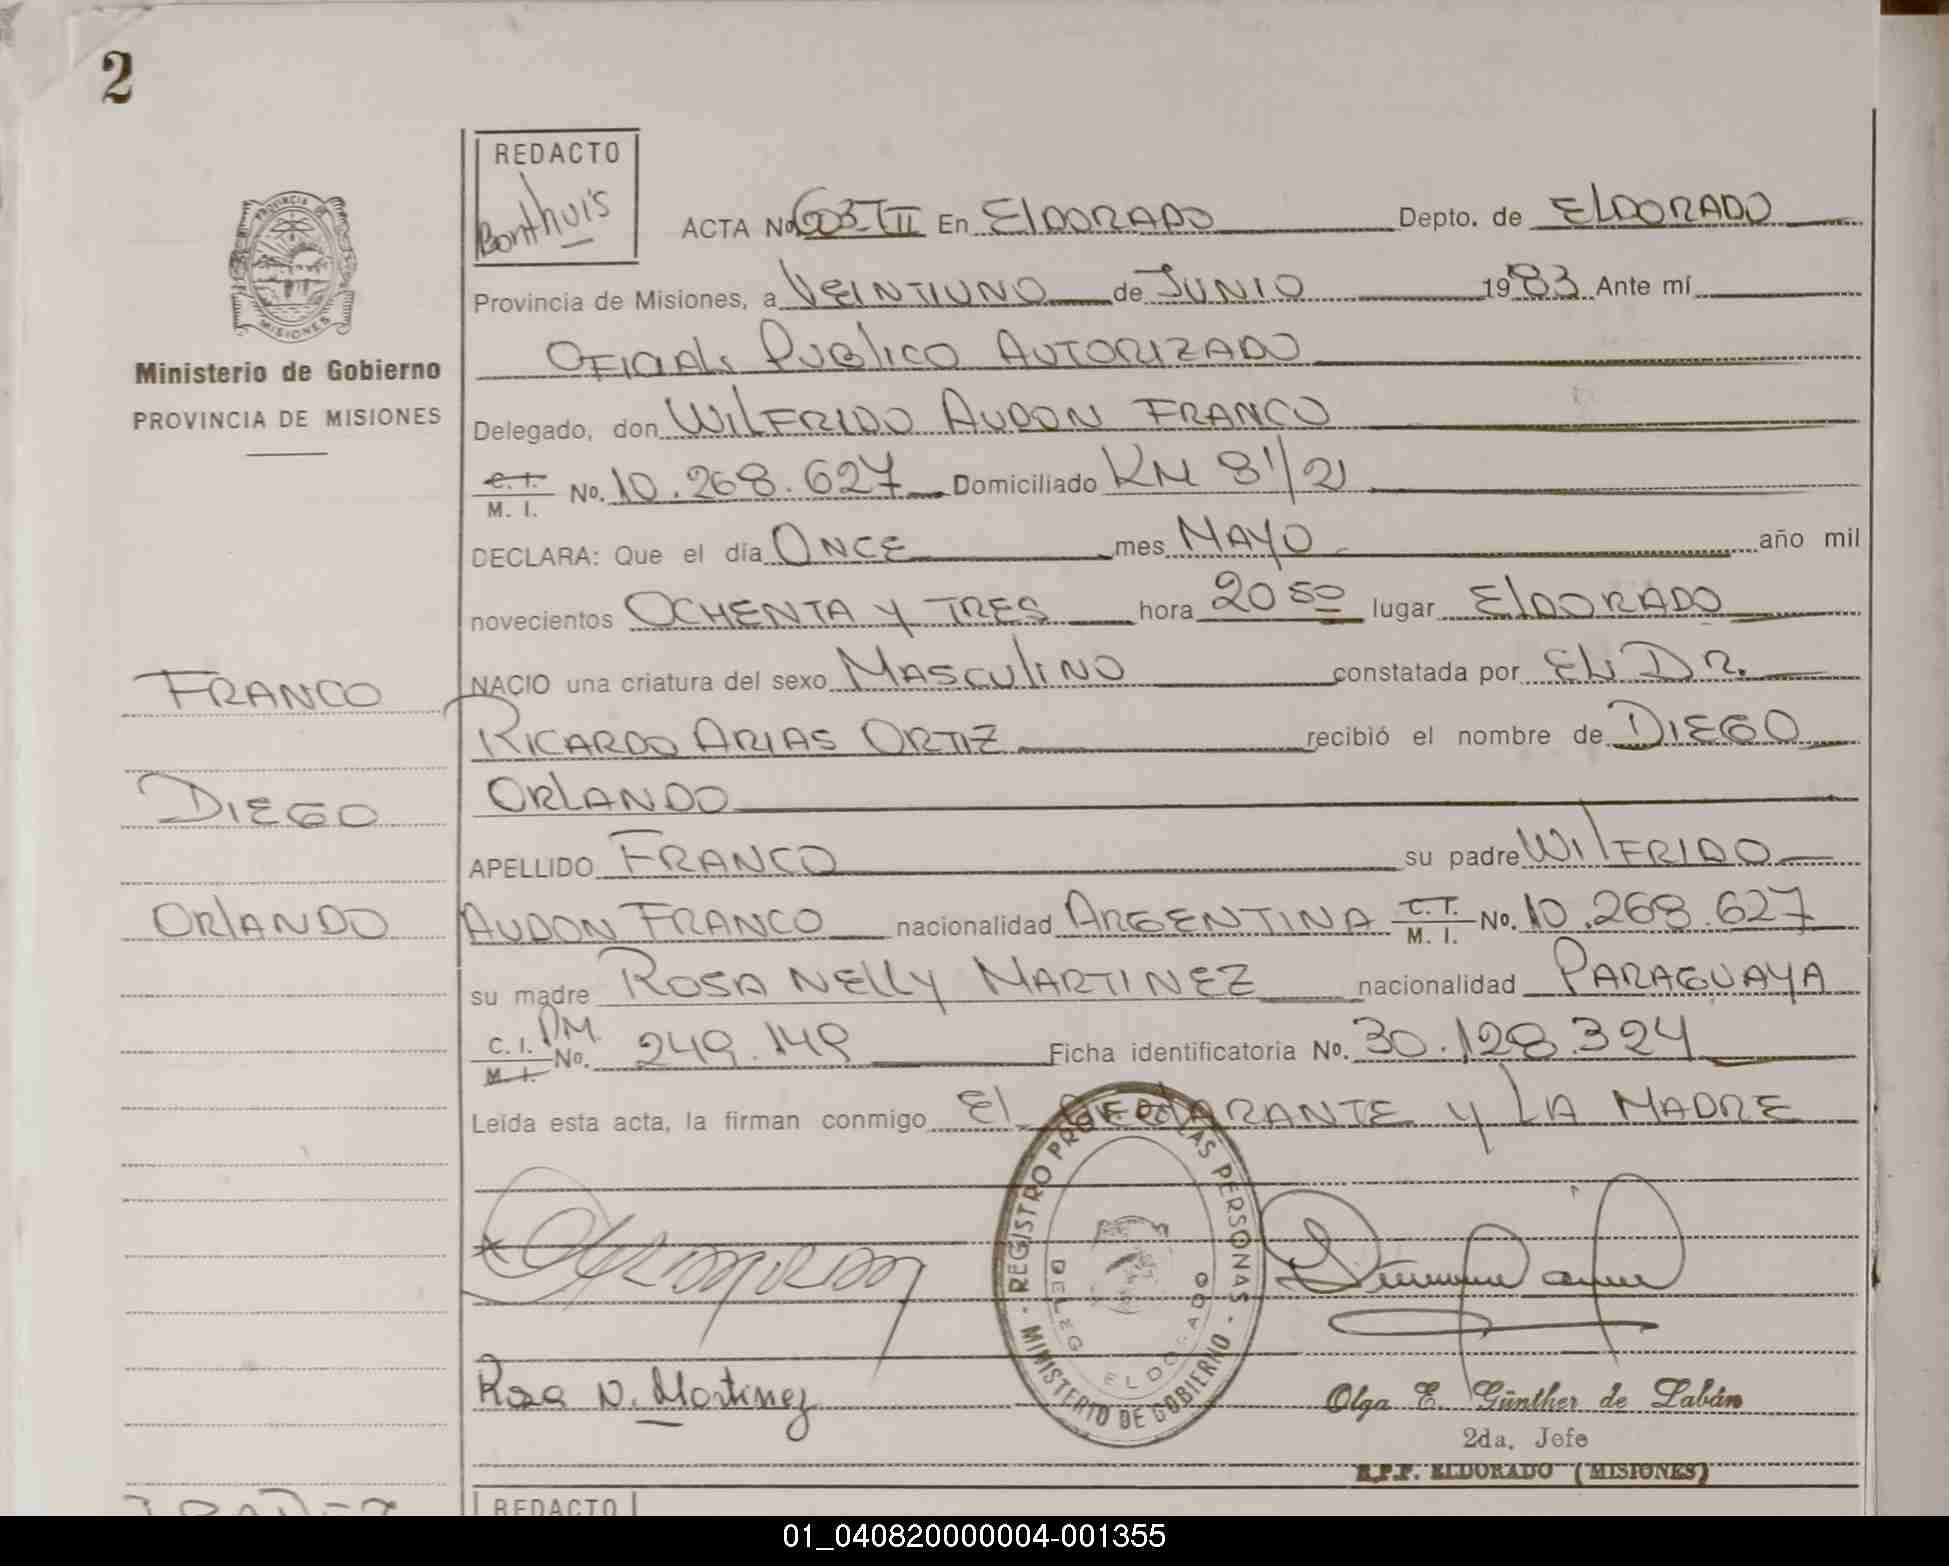 2
REDACTO
Bonthuis
ACTA No 603-TII En ElDORADO Depto. de ElDORADO
PROVINCIA DE
MISIONES
Provincia de Misiones, a VEINTIUNO de JUNIO 1983 Ante mí
Ministerio de Gobierno
PROVINCIA DE MISIONES
OFICIAL PUBlICO AUTORIZADO
Delegado, don WILFRIDO AUDON FRANCO
C. I. M. I. No. 10.268.627 Domiciliado KM 8 1/2
DECLARA: Que el día ONCE mes MAYO año mil
novecientos OCHENTA Y TRES hora 20 50 lugar ElDORADO
NACIO una criatura del sexo MASCUlINO constatada por EL DR.
RICARDO ARIAS ORTIZ recibió el nombre de DIEGO
ORLANDO
APELLIDO FRANCO su padre WIlFRIDO
AUDON FRANCO nacionalidad ARGENTINA C. I. M. I. No. 10.268.627
su madre ROSA NElly MARTINEZ nacionalidad PARAGUAYA
C. I. M. I. No. 249.149 Ficha identificatoria No. 30.128.324
Leída esta acta, la firman conmigo El DEClARANTE Y LA MADRE
FRANCO
DIEGO
ORlANDO
REGISTRO PROV. DE LAS PERSONAS
MINISTERIO DE GOBIERNO
DELEG. ELDORADO
Rosa N. Martinez
Olga E. Günther de Labán
2da. Jefe
R.P.P. ELDORADO (MISIONES)
REDACTO
01_040820000004-001355